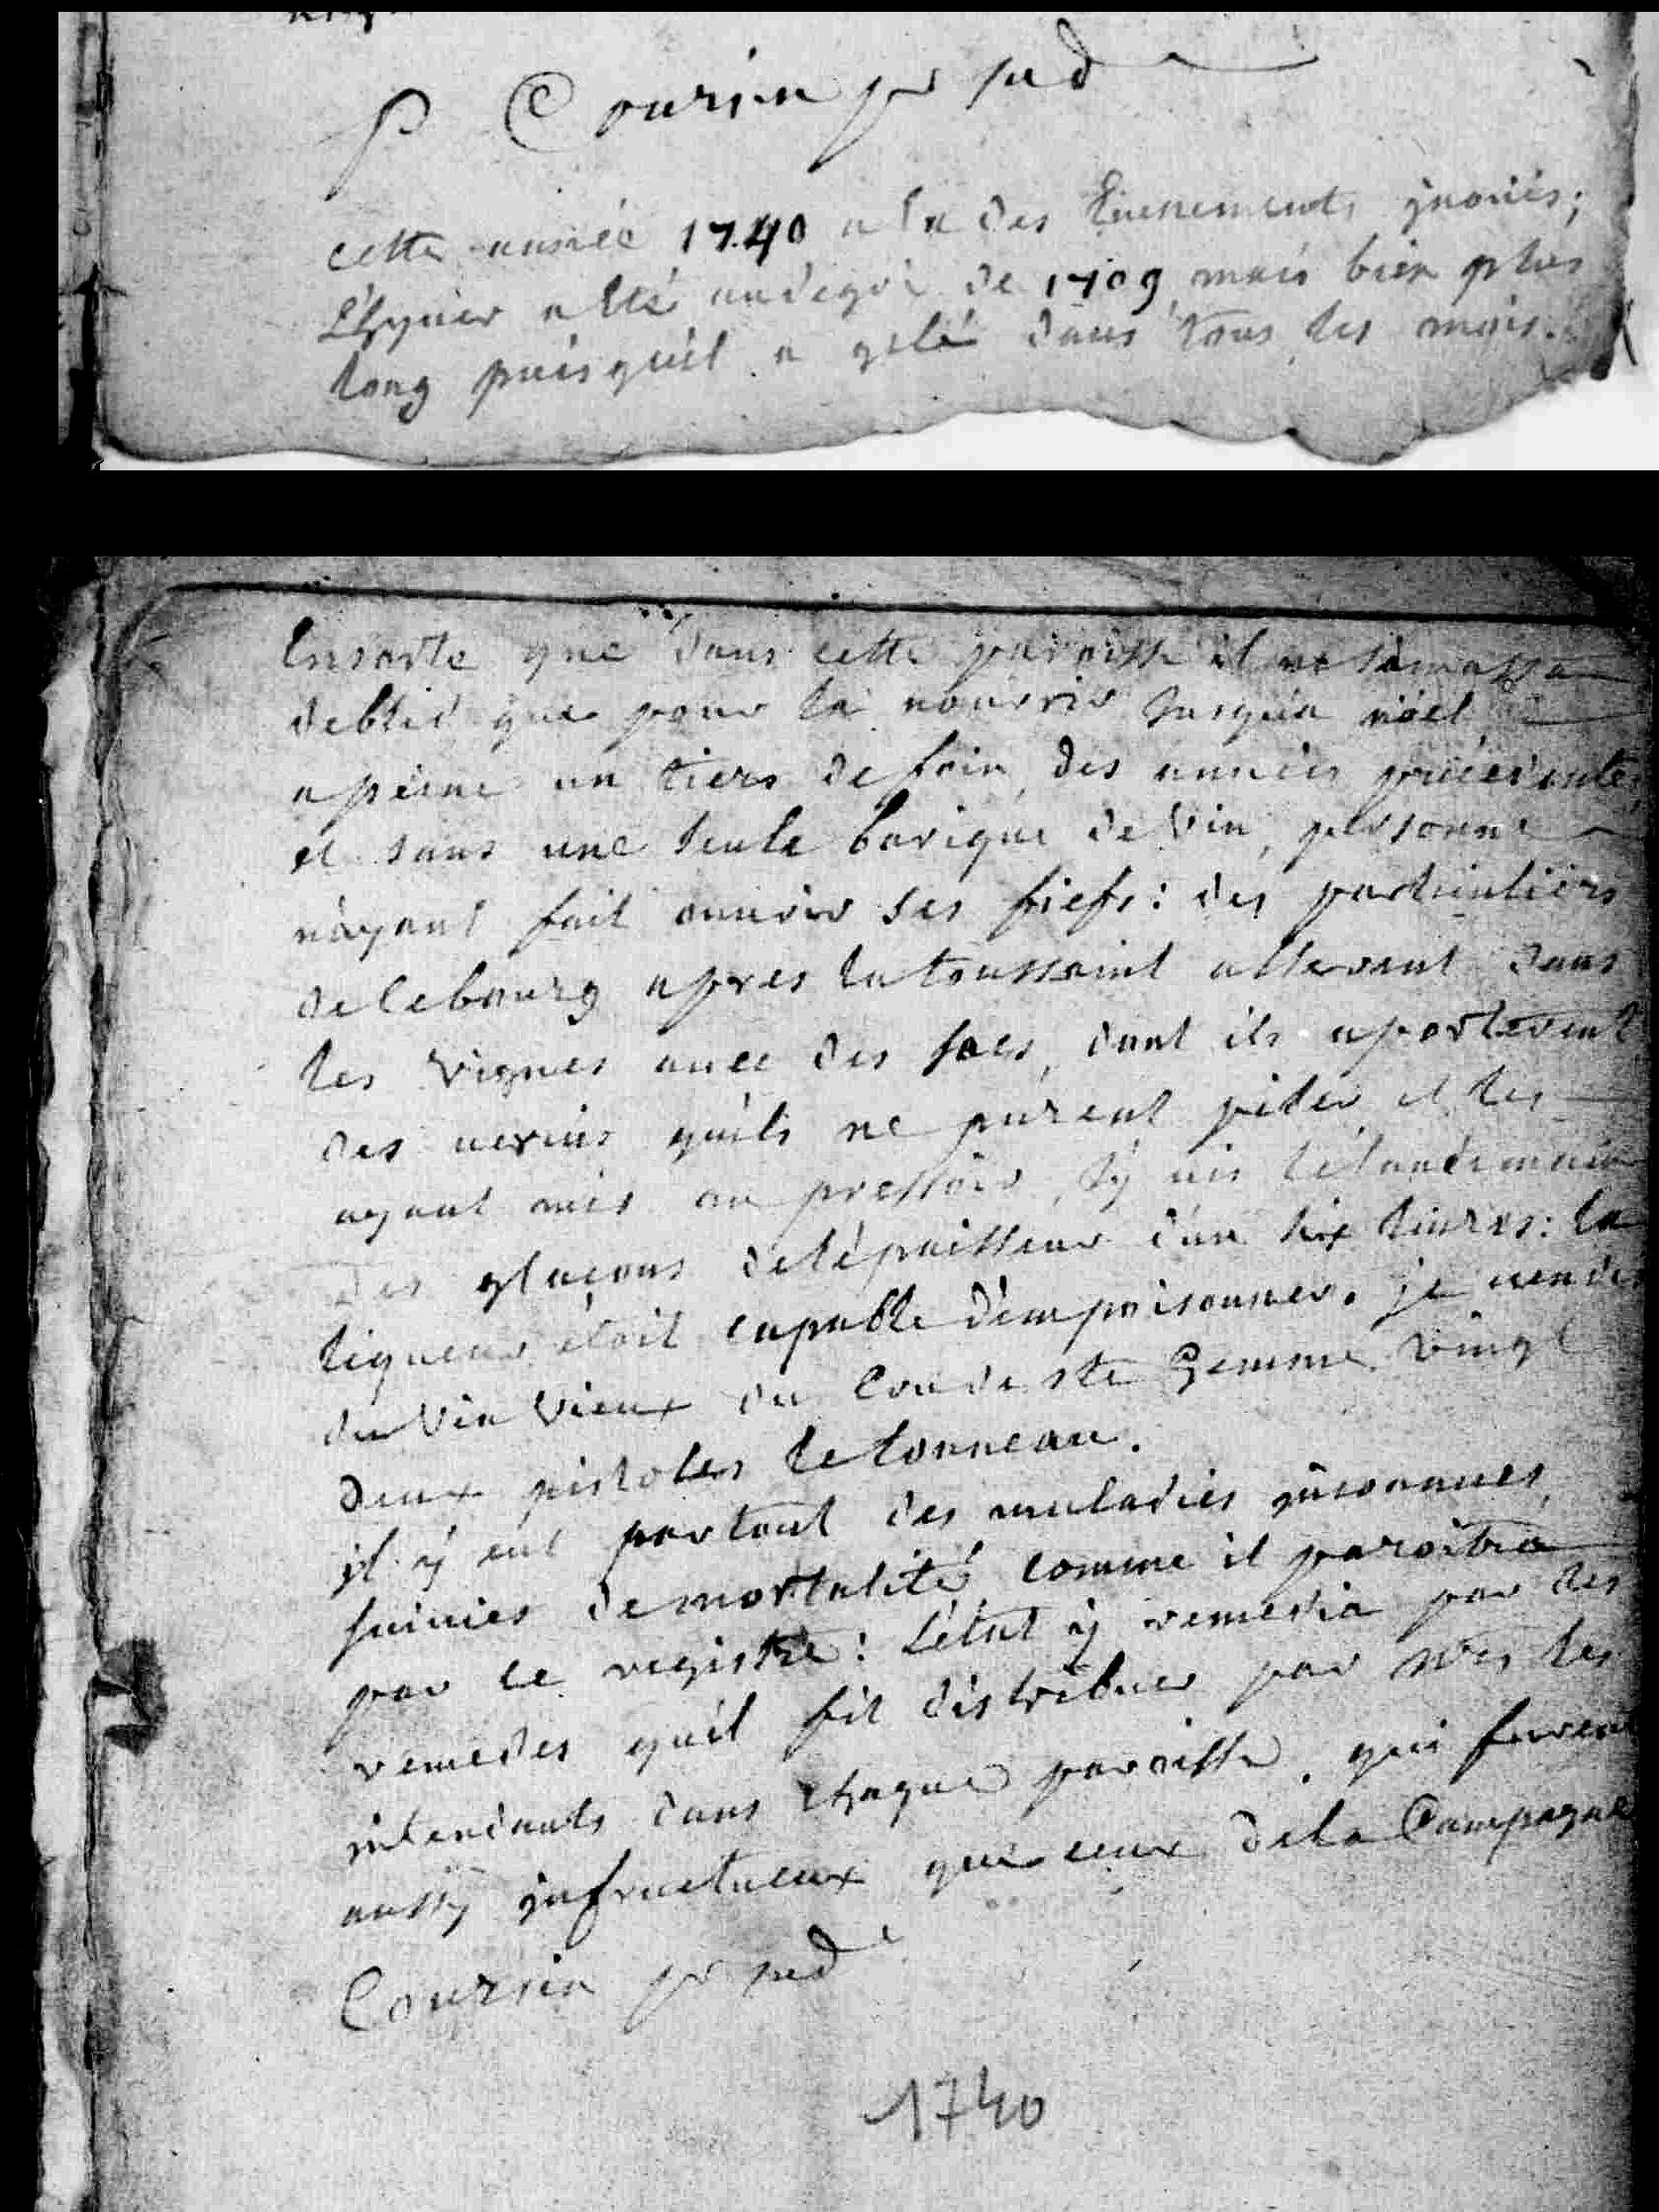 P Coursin pr sud
cette année 1740 a eu des Evenements jnouis;
L'hyuer a été audegré de 1709, mais bien plus
long puisquil a gelé dans tous les mois.
Ensorte que dans cette paroisse il ne s'amassa
debled que pour la nourrir Jusqua nöel
apeine un tiers de foin des années précédentes,
et sans une seule barique de vin, personne
näyant fait ouurir ses fiefs: des particuliers
de cebourg apres latoussaint allerent dans
les vignes auec des sacs, dont ils aporterent
des uerjus quils ne purent piler, et les
ayant mis au pressoir, J'y uis lelandemain
Des glaçons delépaisseur d'un six liures: la
liqueur étoit capable dempoisonner. je uendis
du vin vieux du Cru de ste Gemme vingt
deux pistoles letonneau.
jl ÿ eut partout des maladies jnconnues,
suiuies demortalité comme il paroitra
par ce registre: Létat ÿ remedia par des
remedes quil fit distribuer par mrs les
jntendants dans chaque paroisse, qui furent
aussÿ jnfructueux que ceux dela Campagne
Coursin pr sud
1740